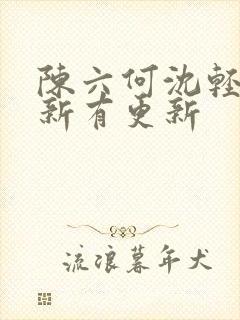 陳六何沈輕
新有更新
流浪暮年犬